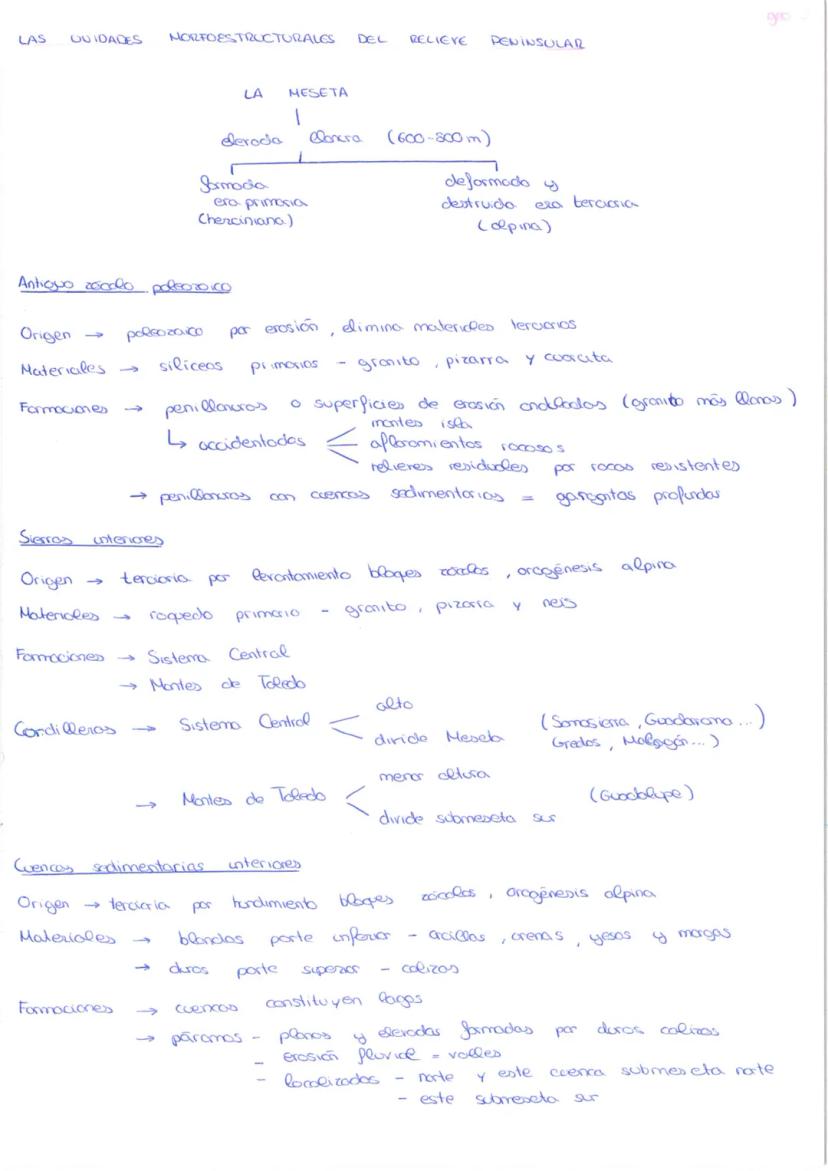 geo
LAS UNIDADES MORFOESTRUCTURALES DEL RELIEVE PENINSULAR
LA MESETA
elevada llanura (600-800m)
formada
era primaria
(herciniana)
deformado y
destruido era terciaria
(alpina)
Antiguo zócalo paleozoico
Origen → paleozoico por erosión, elimina materiales terciarios
Materiales → silíceos primarios - granito, pizarra y cuarcita
Formaciones → penillanuras o superficies de erosión onduladas (granito más llanas)
↳ accidentadas
montes isla
afloramientos rocosos
relieves residuales por rocas resistentes
→ penillanuras con cuencas sedimentarias = gargantas profundas
Sierras interiores
Origen → terciaria por levantamiento bloques zócalos, orogénesis alpina
Materiales → roquedo primario - granito, pizarra y neis
Formaciones → Sistema Central
→ Montes de Toledo
Cordilleras → Sistema Central
alto
divide Meseta
(Somosierra, Guadarrama...)
Gredos, Malagón...)
→ Montes de Toledo
menor altura
divide submeseta sur
(Guadalupe)
Cuencas sedimentarias interiores
Origen → terciaria por hundimiento bloques zócalos, orogénesis alpina
Materiales → blandos parte inferior - arcillas, arenas, yesos y margas
→ duros parte superior - calizas
Formaciones → cuencas constituyen lagos
→ páramos - planos y elevadas formadas por duros calizas
- erosión fluvial = valles
- localizados - norte y este cuenca submeseta norte
- este submeseta sur